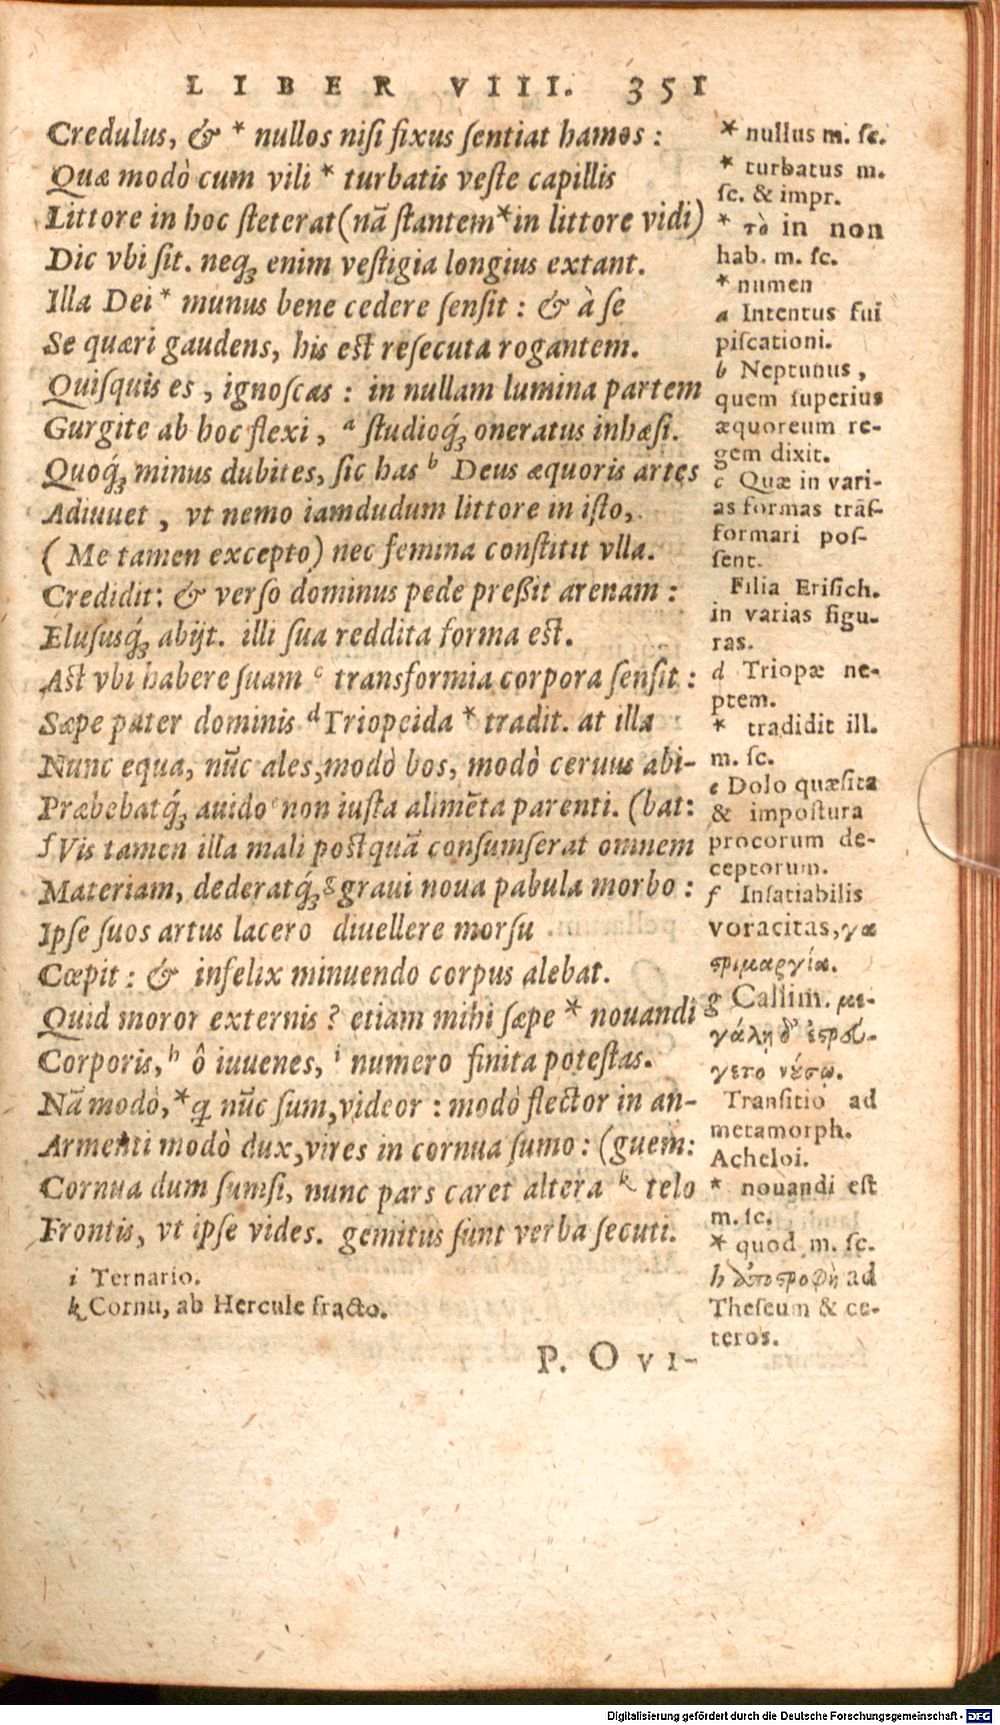 LIBER VIII. 351
Credulus, & * nullos nisi fixus sentiat hamos :
Quæ modò cum vili * turbatis veste capillis
Littore in hoc steterat (nã stantem * in littore vidi)
Dic vbi sit. neq́ꝫ enim vestigia longius extant.
Illa Dei * munus bene cedere sensit : & à se
Se quæri gaudens, his est resecuta rogantem.
Quisquis es, ignoscas : in nullam lumina partem
Gurgite ab hoc flexi, a studioq́ꝫ oneratus inhæsi.
Quoq́ꝫ minus dubites, sic has b Deus æquoris artes
Adiuuet, vt nemo iamdudum littore in isto,
( Me tamen excepto) nec femina constitit vlla.
Credidit: & verso dominus pede preßit arenam :
Elususq́ꝫ abijt. illi sua reddita forma est.
Ast vbi habere suam c transformia corpora sensit :
Sæpe pater dominis d Triopeida * tradit. at illa
Nunc equa, nũc ales, modò bos, modò ceruus abi-
Præbebatq́ꝫ auido e non iusta alimẽta parenti. (bat:
f Vis tamen illa mali postquã consumserat omnem
Materiam, dederatq́ꝫ g graui noua pabula morbo :
Ipse suos artus lacero diuellere morsu
Cœpit : & infelix minuendo corpus alebat.
Quid moror externis ? etiam mihi sæpe * nouandi
Corporis, h ô iuuenes, i numero finita potestas.
Nã modò, * q nũc sum, videor : modò flector in an-
Armenti modò dux, vires in cornua sumo : (guem:
Cornua dum sumsi, nunc pars caret altera k telo
Frontis, vt ipse vides. gemitus sunt verba secuti.
i Ternario.
k Cornu, ab Hercule fracto.
* nullus m. sc.
* turbatus m.
sc. & impr.
* τὸ in non
hab. m. sc.
* numen
a Intentus fui
piscationi.
b Neptunus,
quem superius
æquoreum re-
gem dixit.
c Quæ in vari-
as formas trãs-
formari pos-
sent.
Filia Erisich.
in varias figu-
ras.
d Triopæ ne-
ptem.
* tradidit ill.
m. sc.
e Dolo quæsita
& impostura
procorum de-
ceptorum.
f Insatiabilis
voracitas, γα
στριμαργία.
g Callim. με-
γάλῃ δ' ἐστρού-
γετο νύσῳ.
Transitio ad
metamorph.
Acheloi.
* nouandi est
m. sc.
* quod m. sc.
h ἀποστροφὴ ad
Theseum & ce-
teros.
P. OVI-
Digitalisierung gefördert durch die Deutsche Forschungsgemeinschaft - DFG